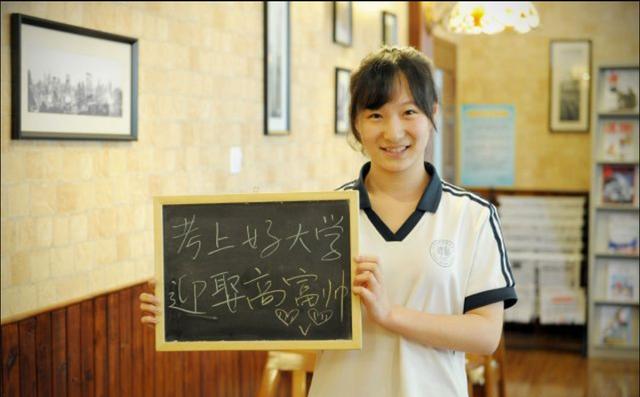 考上好大学
迎娶高富帅